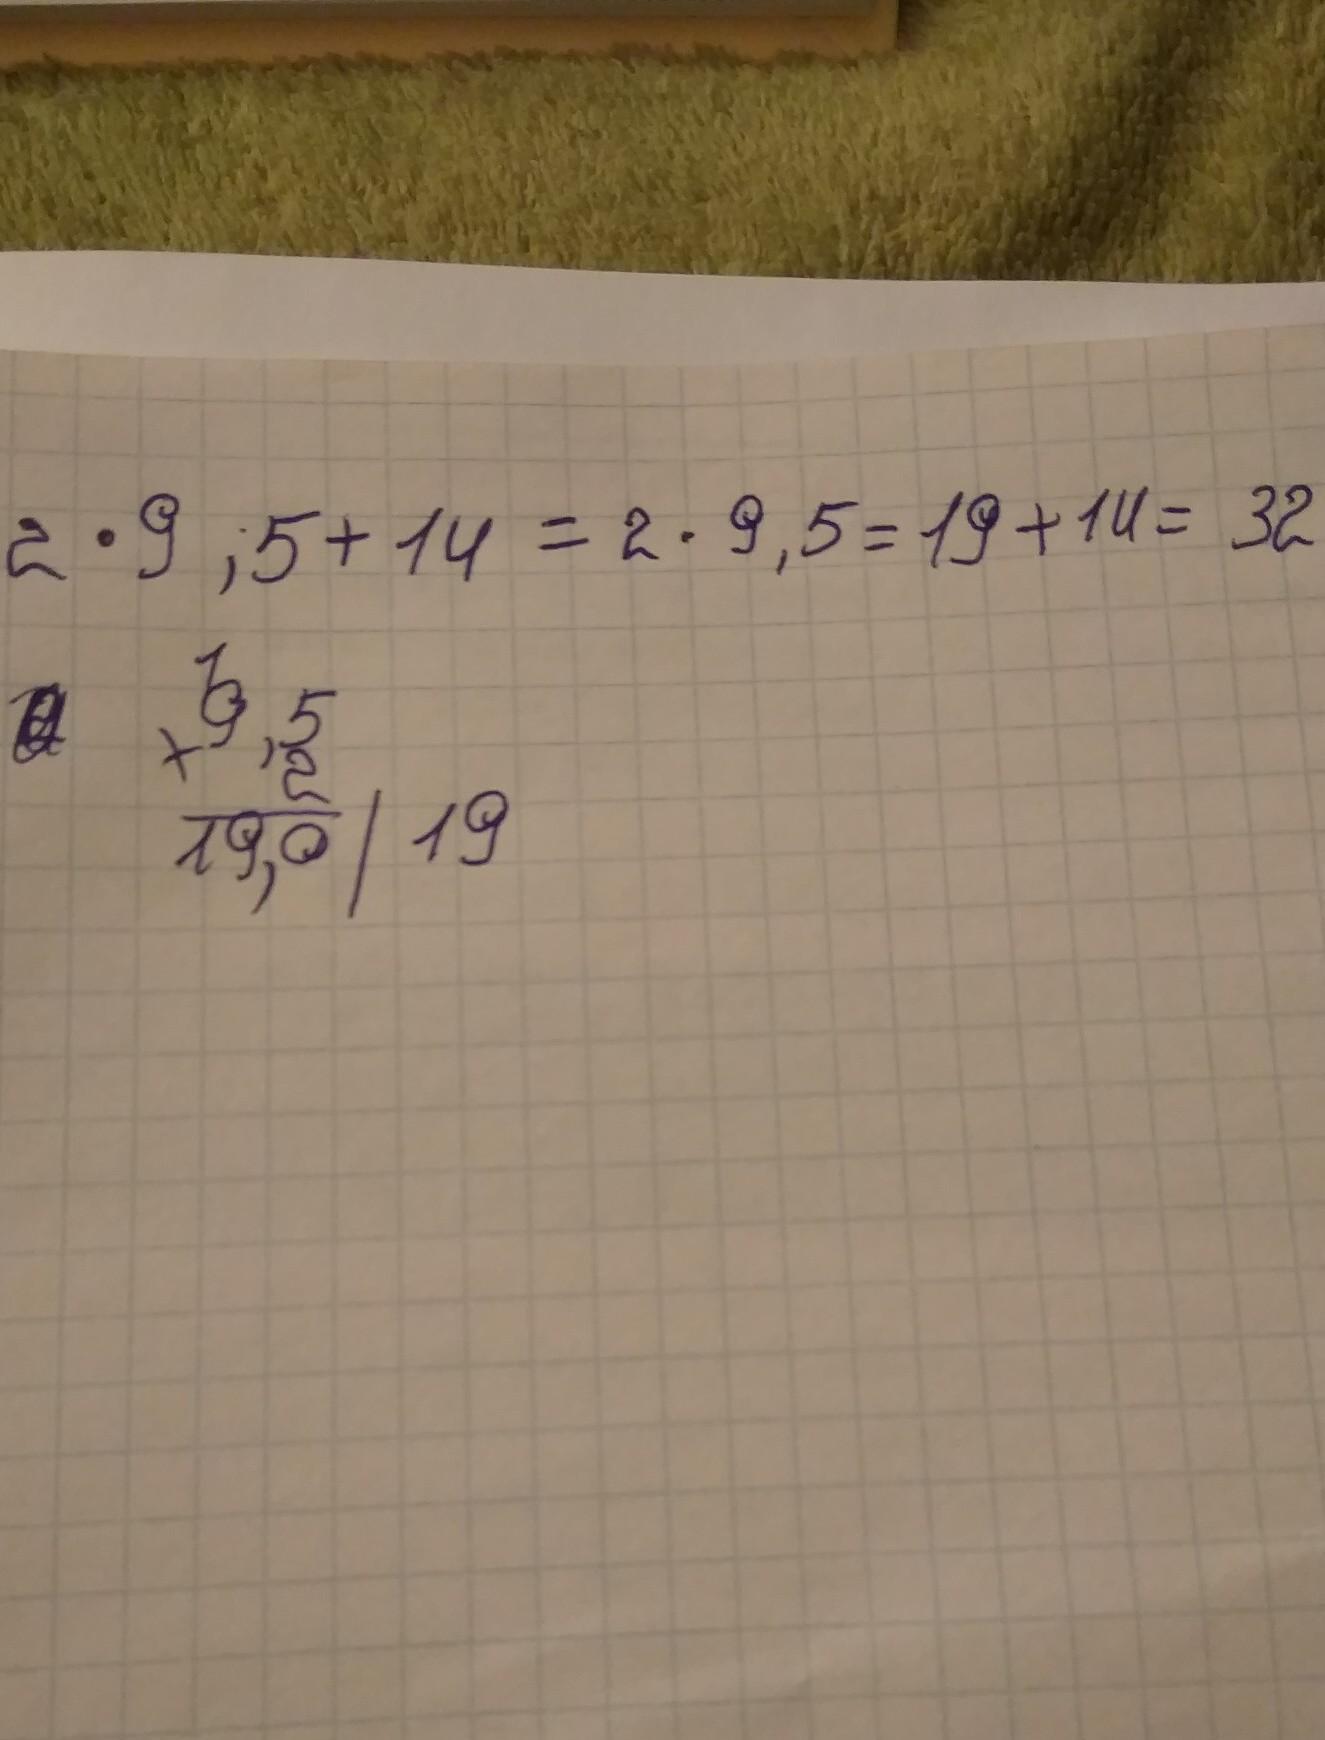 2 · 9,5 + 14 = 2 · 9,5 = 19 + 14 = 32
1
9,5
×
2
19,0 / 19